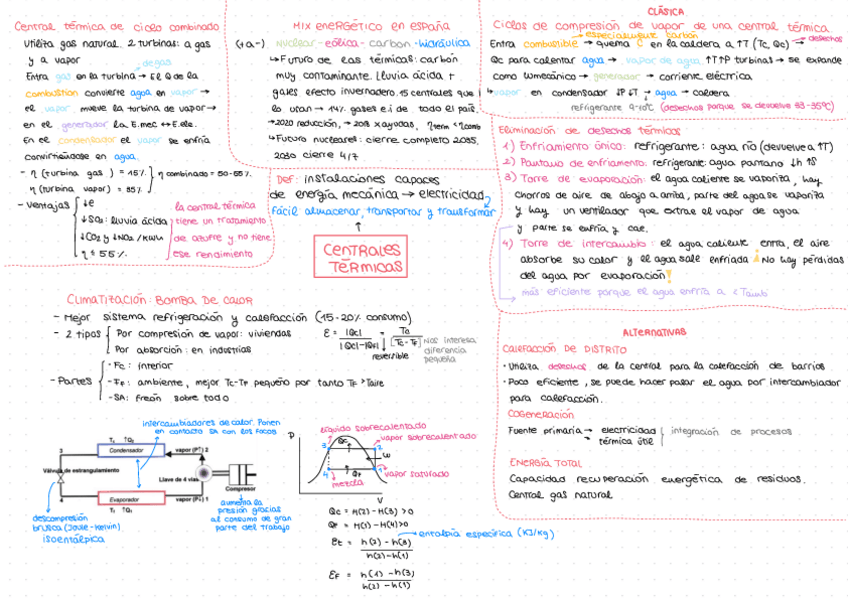 Central térmica de ciclo combinado
Utiliza gas natural. 2 turbinas: a gas
y a vapor
de gas
Entra gas en la turbina → El Q de la
combustion convierte agua en vapor →
el vapor mueve la turbina de vapor →
en el generador la E.mec ↔ E.ele.
En el condensador el vapor se enfría
convirtiéndose en agua.
- η (turbina gas) = 15%
η (turbina vapor) = 35%
η combinado = 50-55%
- Ventajas
↓e
↓SO2: lluvia ácida
↓CO2 y ↓NO2 / KWH
η ≤ 55%
la central térmica
tiene un tratamiento
de azufre y no tiene
ese rendimiento
MIX ENERGÉTICO EN ESPAÑA
(+ a -) nuclear - eólica - carbon - hidráulica
↳ Futuro de las térmicas: carbón
muy contaminante. Lluvia ácida +
gases efecto invernadero. 15 centrales que
lo usan → 14% gases e.i de todo el país.
→ 2020 reducción, → 2018 x ayudas, ηterm < ηcomb
↳ Futuro nucleares: cierre completo 2035,
2030 cierre 4/7
Def: instalaciones capaces
de energía mecánica → electricidad
Fácil almacenar, transportar y transformar
CENTRALES
TÉRMICAS
CLÁSICA
Ciclos de compresión de vapor de una central térmica
especialmente carbón
Entra combustible → quema C en la caldera a ↑T (Tc, Qc) → desechos
Qc para calentar agua → vapor de agua ↑↑↑P turbinas → se expande
como W mecánico → generador → corriente eléctrica
↳ vapor en condensador ↓P ↓T → agua → caldera
refrigerante 9-10ºC (desechos porque se devuelve 33-35ºC)
Eliminación de desechos térmicos
1) Enfriamiento único: refrigerante: agua río (devuelve a ↑T)
2) Pantano de enfriamiento: refrigerante: agua pantano ↓h ↑S
3) Torre de evaporación: el agua caliente se vaporiza, hay
chorros de aire de abajo a arriba, parte del agua se vaporiza
y hay un ventilador que extrae el vapor de agua
y parte se enfría y cae.
4) Torre de intercambio: el agua caliente entra, el aire
absorbe su calor y el agua sale enfriada ¡No hay pérdidas
del agua por evaporación!
más eficiente porque el agua enfría a < Tamb
CLIMATIZACIÓN: BOMBA DE CALOR
- Mejor sistema refrigeración y calefacción (15-20% consumo)
- 2 tipos
Por compresión de vapor: viviendas
Por absorción: en industrias
ε = |Qc| / |Qc|-|QF| = Tc / [Tc - TF]
reversible
Nos interesa
diferencia
pequeña
- Partes
- Fc: interior
- FF: ambiente, mejor Tc-TF pequeño por tanto TF > Taire
- SA: freón sobre todo
intercambiadores de calor. Ponen
en contacto SA con los focos
T1 ↑Q2
Condensador
vapor (P↑) 2
3
Válvula de estrangulamiento
Llave de 4 vías
Compresor
4
Evaporador
vapor (P↓) 1
T1 ↑Q1
descompresión
brusca (Joule-Kelvin)
isoentálpica
aumenta la
presión gracias
al consumo de gran
parte del trabajo
líquido sobrecalentado
P
Qc
vapor sobrecalentado
3
2
W
4
QF
1
vapor saturado
mezcla
V
Qc = H(2) - H(3) > 0
QF = H(1) - H(4) > 0
Ec = h(2) - h(3) / h(2) - h(1)
entalpía específica (KJ/Kg)
EF = h(1) - h(3) / h(2) - h(1)
ALTERNATIVAS
CALEFACCIÓN DE DISTRITO
· Utiliza desechos de la central para la calefacción de barrios
· Poco eficiente, se puede hacer pasar el agua por intercambiador
para calefacción.
COGENERACIÓN
Fuente primaria → electricidad
térmica útil
integración de procesos
ENERGÍA TOTAL
Capacidad recuperación energética de residuos.
Central gas natural